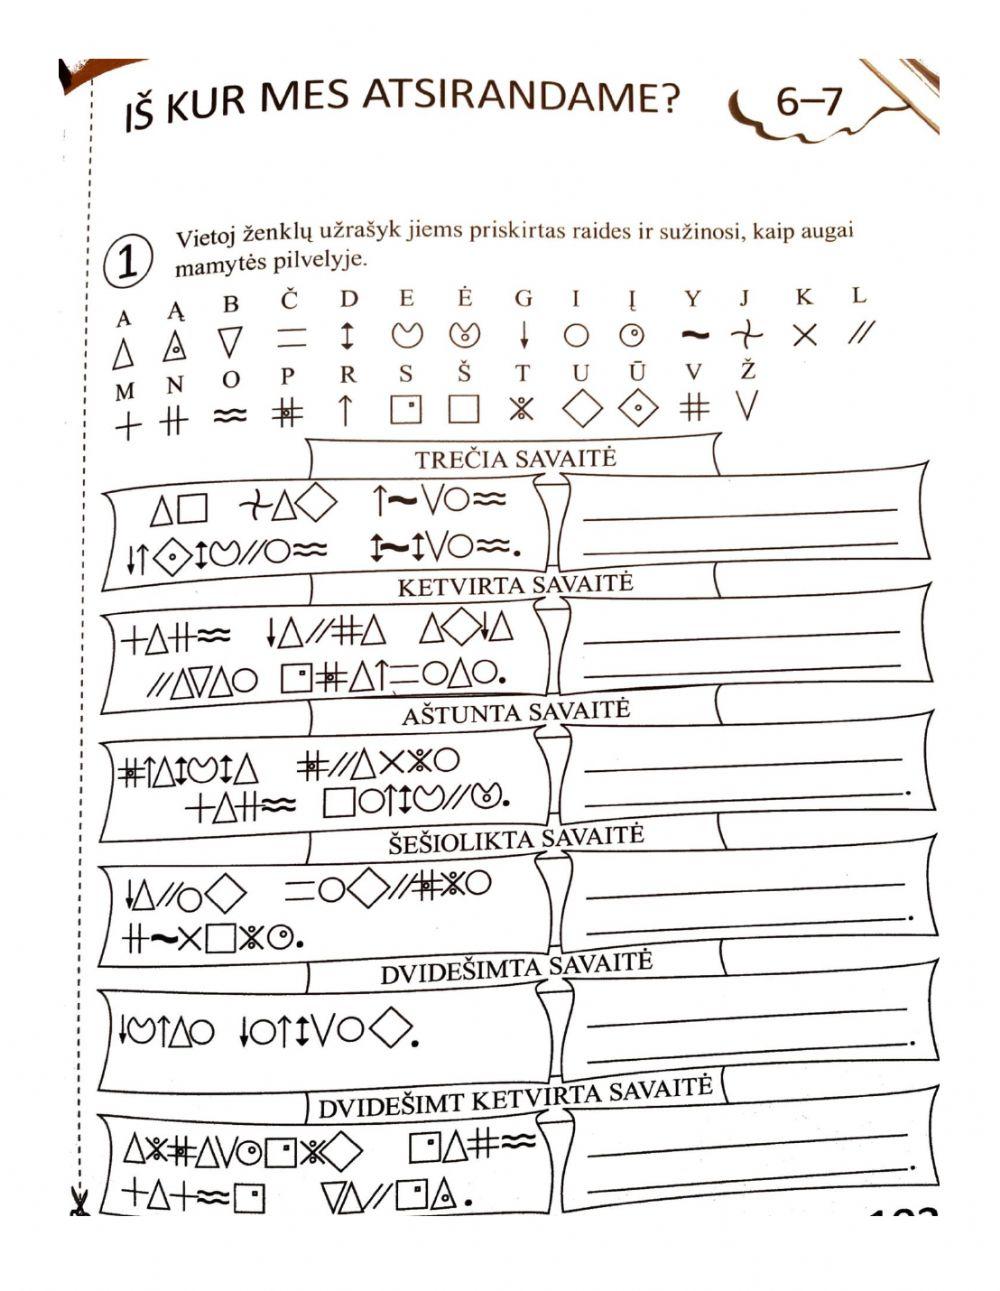 IŠ KUR MES ATSIRANDAME?
6–7
1
Vietoj ženklų užrašyk jiems priskirtas raides ir sužinosi, kaip augai
mamytės pilvelyje.
A Ą B Č D E Ė G I Į Y J K L
M N O P R S Š T U Ū V Ž
TREČIA SAVAITĖ
KETVIRTA SAVAITĖ
AŠTUNTA SAVAITĖ
ŠEŠIOLIKTA SAVAITĖ
DVIDEŠIMTA SAVAITĖ
DVIDEŠIMT KETVIRTA SAVAITĖ